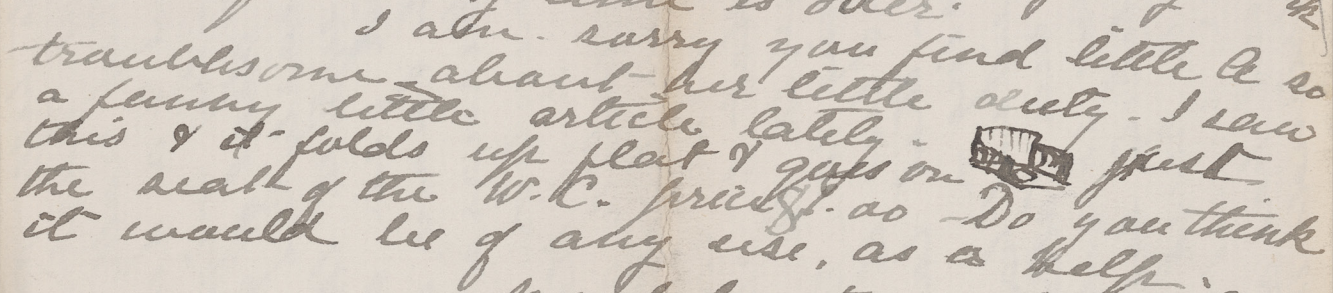 time is over.
I am. sorry you find little A so
troublesome about her little duty. I saw
a funny little article lately. just
this & it folds up flat & goes on
the seat of the W.C. price $1.00 - Do you think
it would be of any use, as a help.